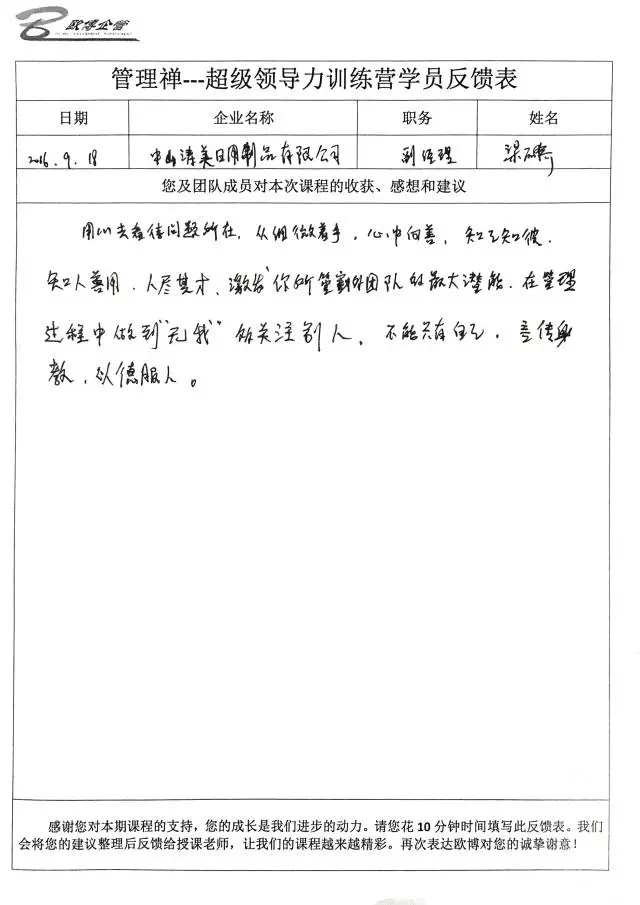 欧博企管
管理禅---超级领导力训练营学员反馈表
日期 企业名称 职务 姓名
2016.9.18 中山涛美日用制品有限公司 副经理 梁
您及团队成员对本次课程的收获、感想和建议
用心去看待问题所在，从细微着手，心中向善，知己知彼.
知人善用，人尽其才、激发你所管团队的最大潜能.在管理
过程中做到“无我”的关注别人，不能只有自己，言传身
教，以德服人。
感谢您对本期课程的支持，您的成长是我们进步的动力。请您花 10 分钟时间填写此反馈表。我们
会将您的建议整理后反馈给授课老师，让我们的课程越来越精彩。再次表达欧博对您的诚挚谢意！